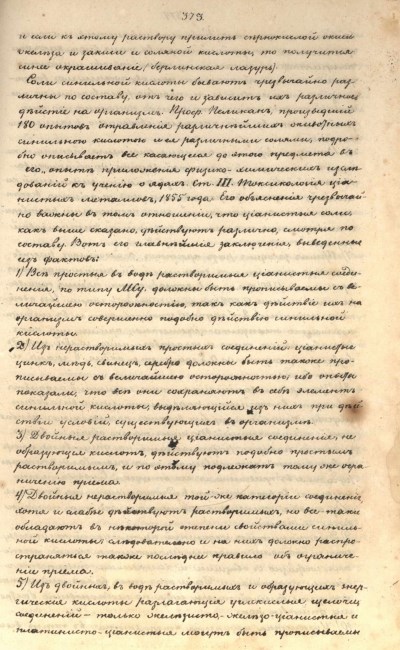 373.
и если к этому раствору прилить сернокислой окиси
и закиси и соляной кислоты, то получится
синее окрашивание (берлинская лазурь).
Соли синильной кислоты бываютъ чрезвычайно раз-
личны по составу, отъ чего и зависитъ ихъ различное
дѣйствіе на организмъ. Проф. Пеликанъ, произведшій
180 опытовъ отравленія различнѣйшихъ животныхъ
синильною кислотою и ея различными солями, подро-
бно описываетъ все касающееся до этого предмета въ
его „опытъ приложенія физико-химическихъ изслѣ-
дованій къ ученію о ядахъ. Ст. III. Токсикологія ціа-
нистыхъ металловъ, 1855 года. Его объясненія чрезвычай-
но важны въ томъ отношеніи, что ціанистыя соли,
какъ выше сказано, дѣйствуютъ различно, смотря по
составу. Вотъ его главнѣйшія заключенія, выведенныя
изъ фактовъ:
1) Всѣ простыя въ водѣ растворимыя ціанистыя соеди-
ненія, по типу должны быть прописываемы съ ве-
личайшею осторожностію, такъ какъ дѣйствіе ихъ на
организмъ совершенно подобно дѣйствію синильной
кислоты.
2) Изъ нерастворимыхъ простыхъ соединеній: ціанистые
цинкъ, мѣдь, свинецъ, серебро должны быть также про-
писываемы съ величайшею осторожностью; ибо опыты
показали, что всѣ они сохраняютъ въ себѣ элементъ
синильной кислоты, выдѣляющійся изъ нихъ при дѣй-
ствіи условій, существующихъ въ организмѣ.
3) Двойныя растворимыя ціанистыя соединенія, не
образующія кислотъ, дѣйствуютъ подобно простымъ
растворимымъ, и по этому подлежатъ тому же огра-
ниченію пріема.
4) Двойныя нерастворимыя той-же категоріи соединенія
хотя и слабѣе дѣйствуютъ растворимыхъ, но все-таки
обладаютъ въ нѣкоторой степени свойствами синиль-
ной кислоты: слѣдовательно и на нихъ должно распро-
страняться также послѣднее правило объ ограниче-
ніи пріема.
5) Изъ двойныхъ, въ водѣ растворимыхъ и образующихъ энер-
гическія кислоты разлагающія углекислыя щелочи
соединеній — только желѣзисто- желѣзо-ціанистыя и
платинисто-ціанистыя могутъ быть прописываемы